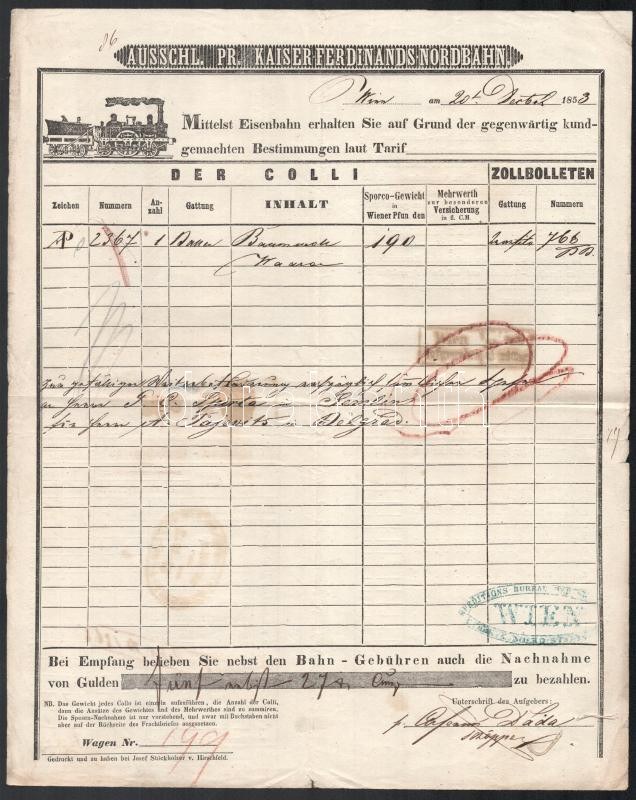 86
AUSSCHL. PR. KAISER FERDINANDS NORDBAHN.
Wien am 20t. Decbr 1853
Mittelst Eisenbahn erhalten Sie auf Grund der gegenwärtig kund-
gemachten Bestimmungen laut Tarif
DER COLLI ZOLLBOLLETEN
Zeichen Nummern An-zahl Gattung INHALT Sporco-Gewicht in Wiener Pfunden Mehrwerth zur besonderen Versicherung in fl. C.M. Gattung Nummern
AP 2367 1 Ballen Baumwoll 190 766
Waaren
an Herrn in Semlin
für Herrn A. in Belgrad.
WIEN
Bei Empfang belieben Sie nebst den Bahn-Gebühren auch die Nachnahme
von Gulden fünf 27 zu bezahlen.
NB. Das Gewicht jedes Colls ist einzeln aufzuführen, die Anzahl der Colli,
dann die Ansätze des Gewichtes und des Mehrwerthes sind zu summiren.
Die Spesen-Nachnahme ist nur vorstehend, und zwar mit Buchstaben nicht
aber auf der Rückseite des Frachtbriefes auszusetzen.
Unterschrift des Aufgebers:
Wagen Nr. 199
Gedruckt und zu haben bei Josef Stöckholzer v. Hirschfeld.